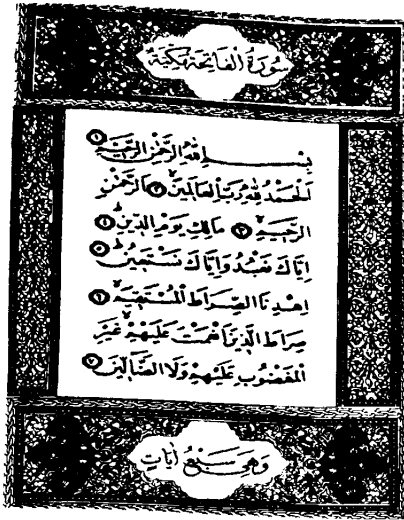 سُورَةُ الْفَاتِحَةِ مَكِّيَّةٌ
بِسْمِ اللّٰهِ الرَّحْمٰنِ الرَّحِيمِ ١
اَلْحَمْدُ لِلّٰهِ رَبِّ الْعَالَمِينَ ٢ اَلرَّحْمٰنِ
الرَّحِيمِ ٣ مَالِكِ يَوْمِ الدِّينِ ٤
اِيَّاكَ نَعْبُدُ وَاِيَّاكَ نَسْتَعِينُ ٥
اِهْدِنَا الصِّرَاطَ الْمُسْتَقِيمَ ٦
صِرَاطَ الَّذِينَ اَنْعَمْتَ عَلَيْهِمْ غَيْرِ
الْمَغْضُوبِ عَلَيْهِمْ وَلَا الضَّالِّينَ ٧
وَهِيَ سَبْعُ اٰيَاتٍ